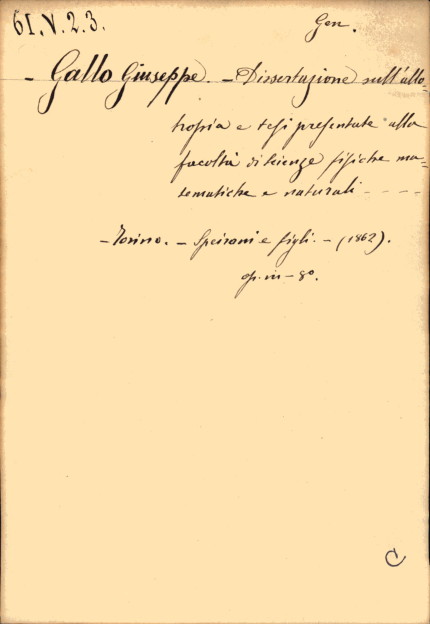 61.V.2.3. Gen.
- Gallo Giuseppe. - Dissertazione sull'allo-
tropia e tesi presentate alla
facoltà di scienze fisiche ma-
tematiche e naturali - - - -
- Torino. - Speirani e figli. - (1862).
op. in - 8º.
C